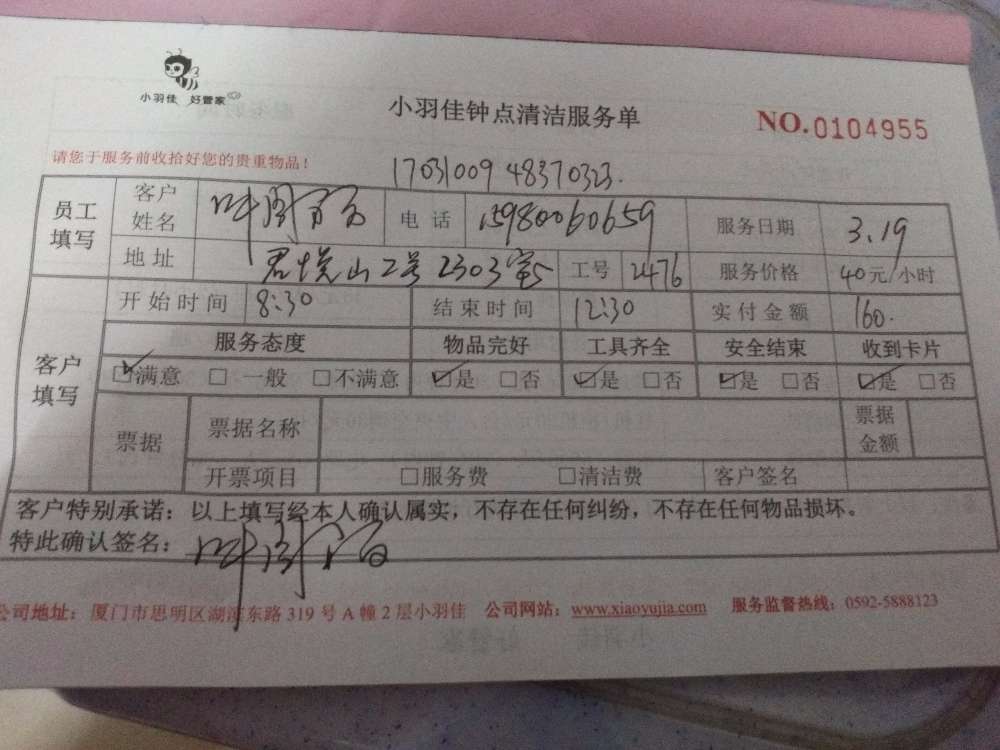 小羽佳 好管家
小羽佳钟点清洁服务单
NO.0104955
请您于服务前收拾好您的贵重物品！
17031009 48370323.
员工填写 客户姓名 叶 电话 15980060659 服务日期 3.19
地址 山2号2303室 工号 2476 服务价格 40元/小时
客户填写 开始时间 8:30 结束时间 12:30 实付金额 160.
服务态度 物品完好 工具齐全 安全结束 收到卡片
☑满意 □一般 □不满意 ☑是 □否 ☑是 □否 ☑是 □否 ☑是 □否
票据 票据名称 票据金额
开票项目 □服务费 □清洁费 客户签名
客户特别承诺：以上填写经本人确认属实，不存在任何纠纷，不存在任何物品损坏。
特此确认签名：叶
公司地址：厦门市思明区湖滨东路 319 号 A 幢 2 层小羽佳 公司网站：www.xiaoyujia.com 服务监督热线：0592-5888123